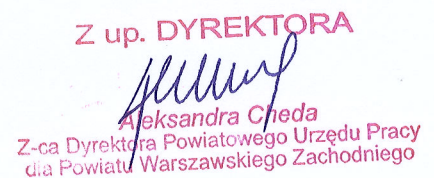 Z up. DYREKTORA
Aleksandra Cheda
Z-ca Dyrektora Powiatowego Urzędu Pracy
dla Powiatu Warszawskiego Zachodniego